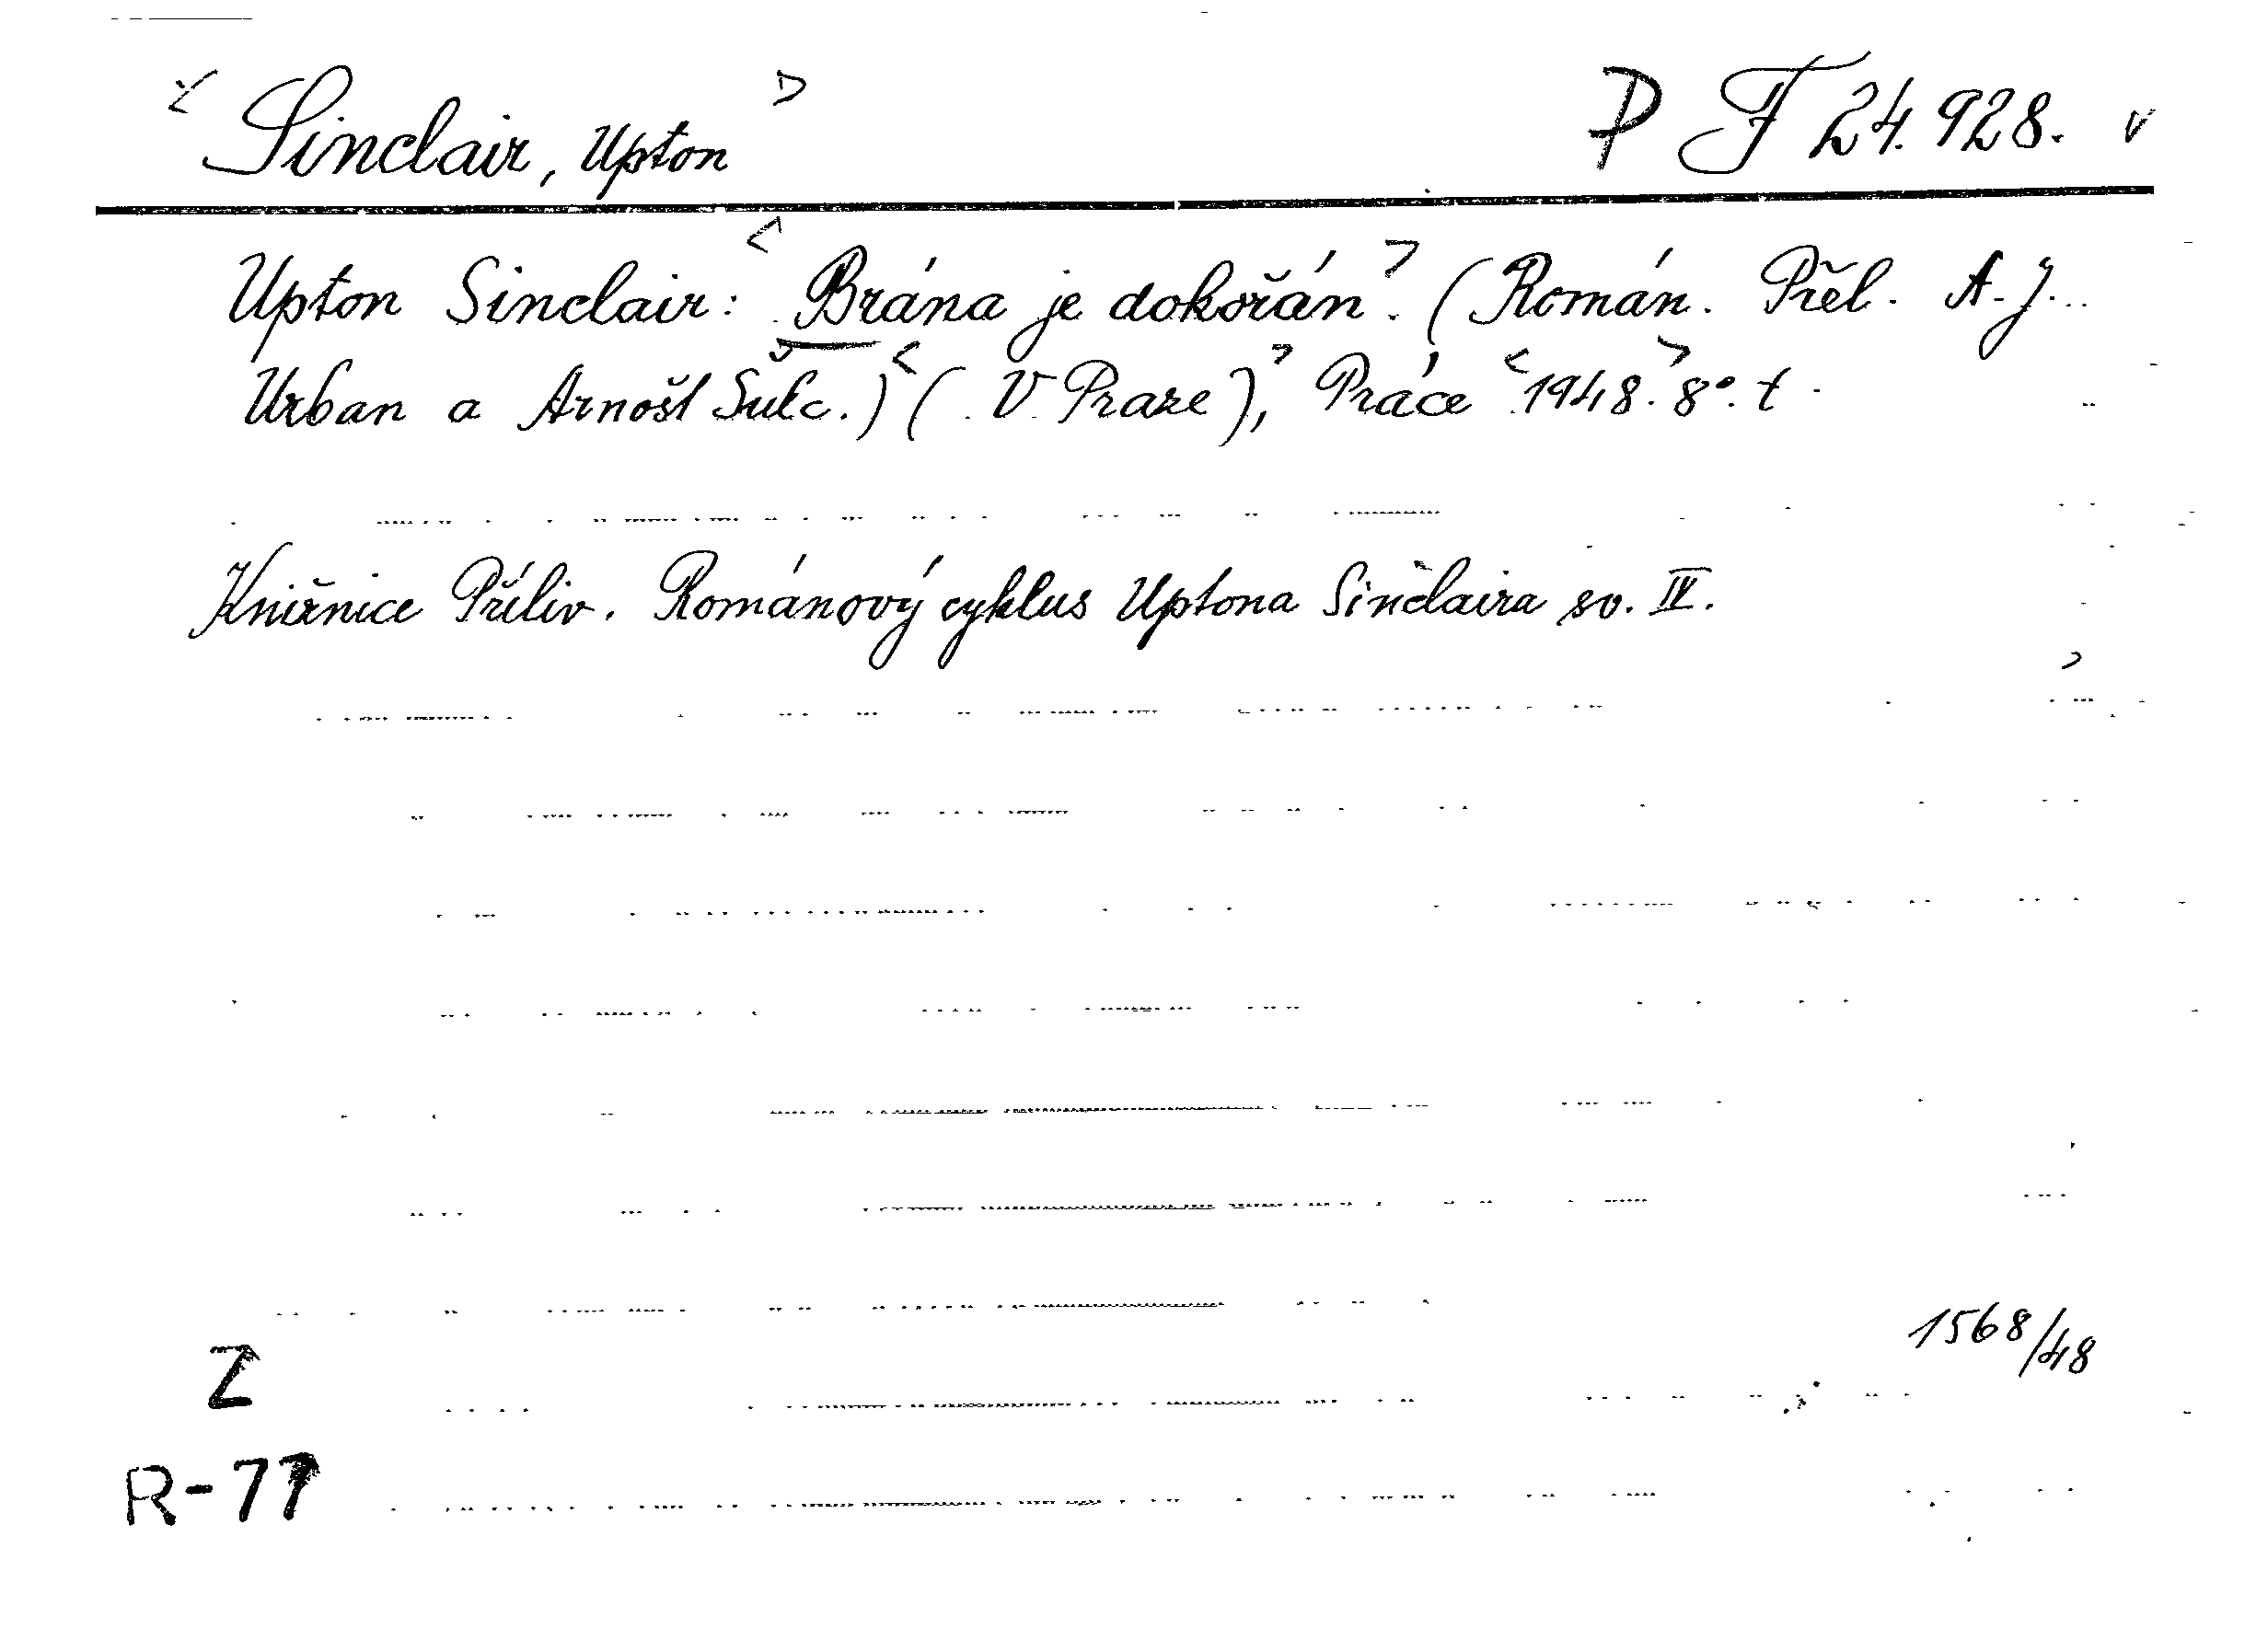 <Sinclair, Upton> P F 24.928. v
Upton Sinclair: <Brána je dokořán>. (Román. Přel. A. J.
Urban a Arnošt Šulc.) <(V Praze),> Práce <1948.> 8°. t.
Knižnice Příliv. Románový cyklus Uptona Sinclaira sv. IV.
1568/48
Z
R-77